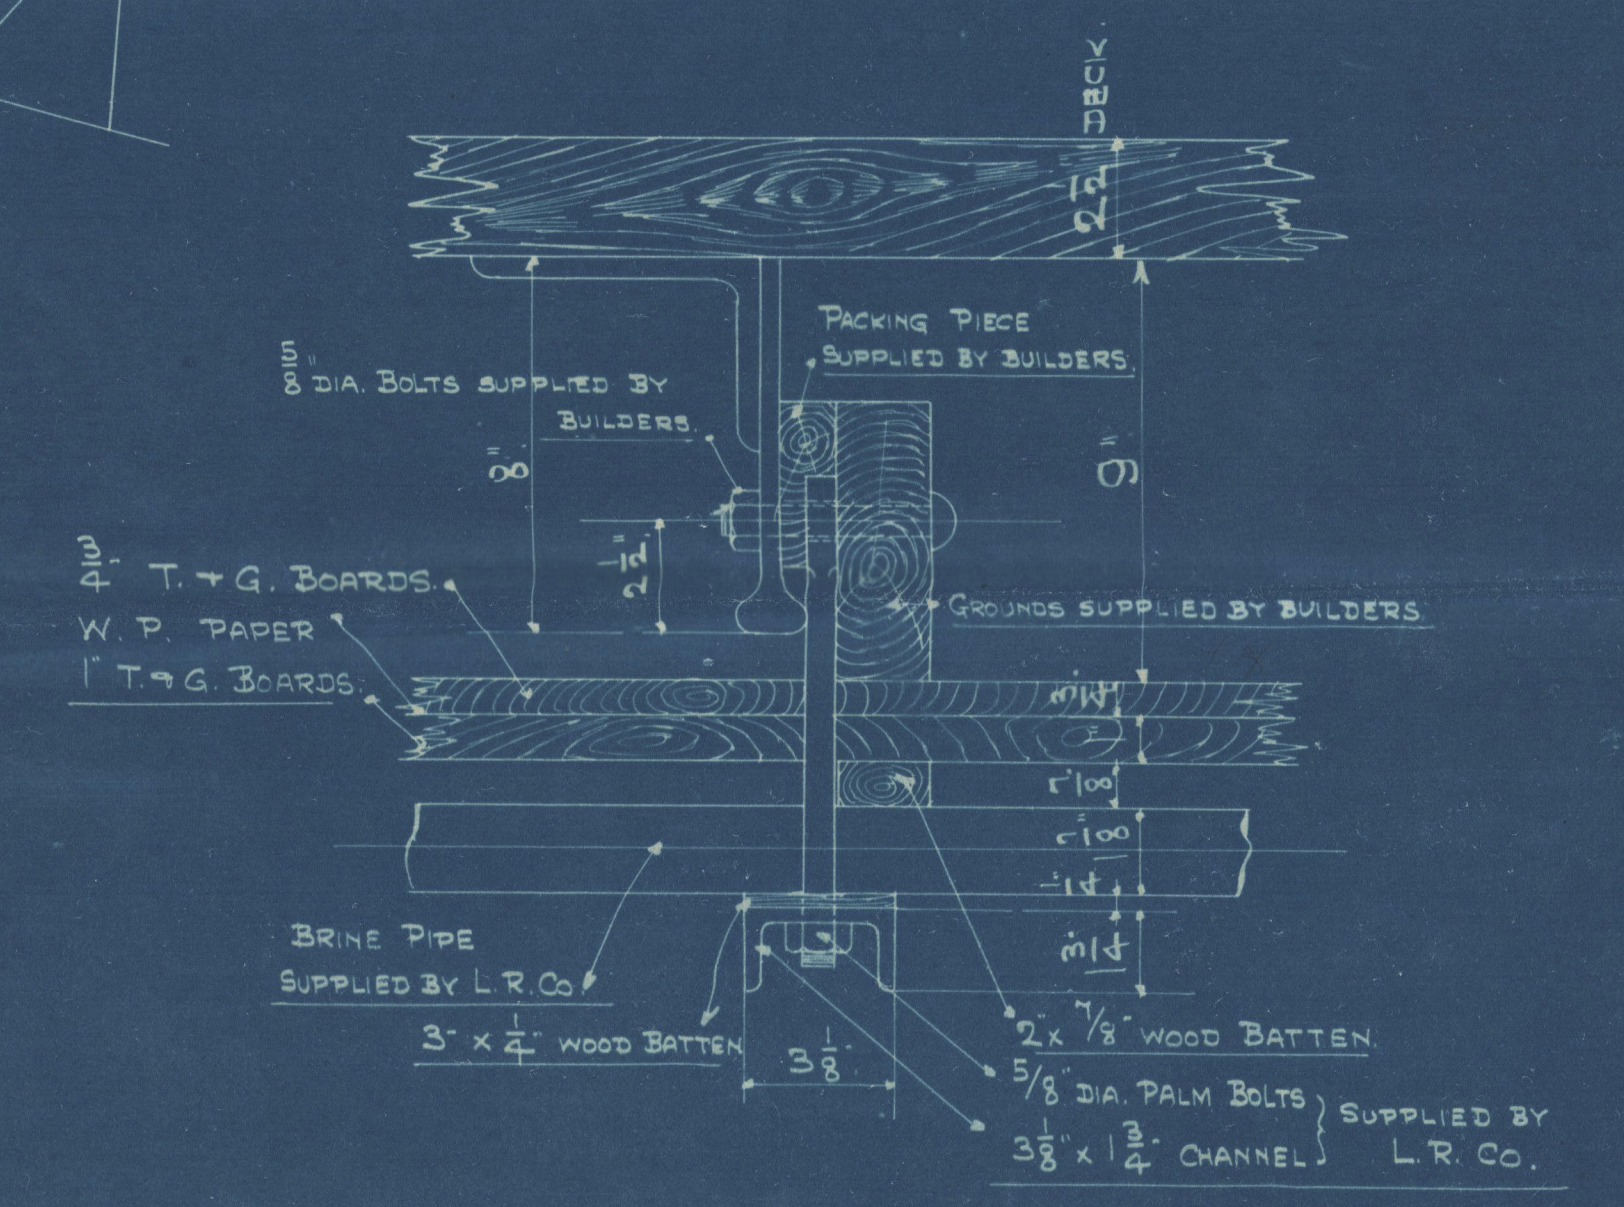 2 1/2"
PACKING PIECE
SUPPLIED BY BUILDERS.
5/8" DIA. BOLTS SUPPLIED BY
BUILDERS.
8"
9"
2 1/2"
3/4" T. & G. BOARDS.
W. P. PAPER
1" T. & G. BOARDS.
GROUNDS SUPPLIED BY BUILDERS.
3/4"
1"
7/8"
1 7/8"
1/4"
1 3/4"
BRINE PIPE
SUPPLIED BY L.R. CO.
3" x 1/4" WOOD BATTEN
3 1/8"
2" x 7/8" WOOD BATTEN.
5/8" DIA. PALM BOLTS
3 1/8" x 1 3/4" CHANNEL
SUPPLIED BY
L.R. CO.